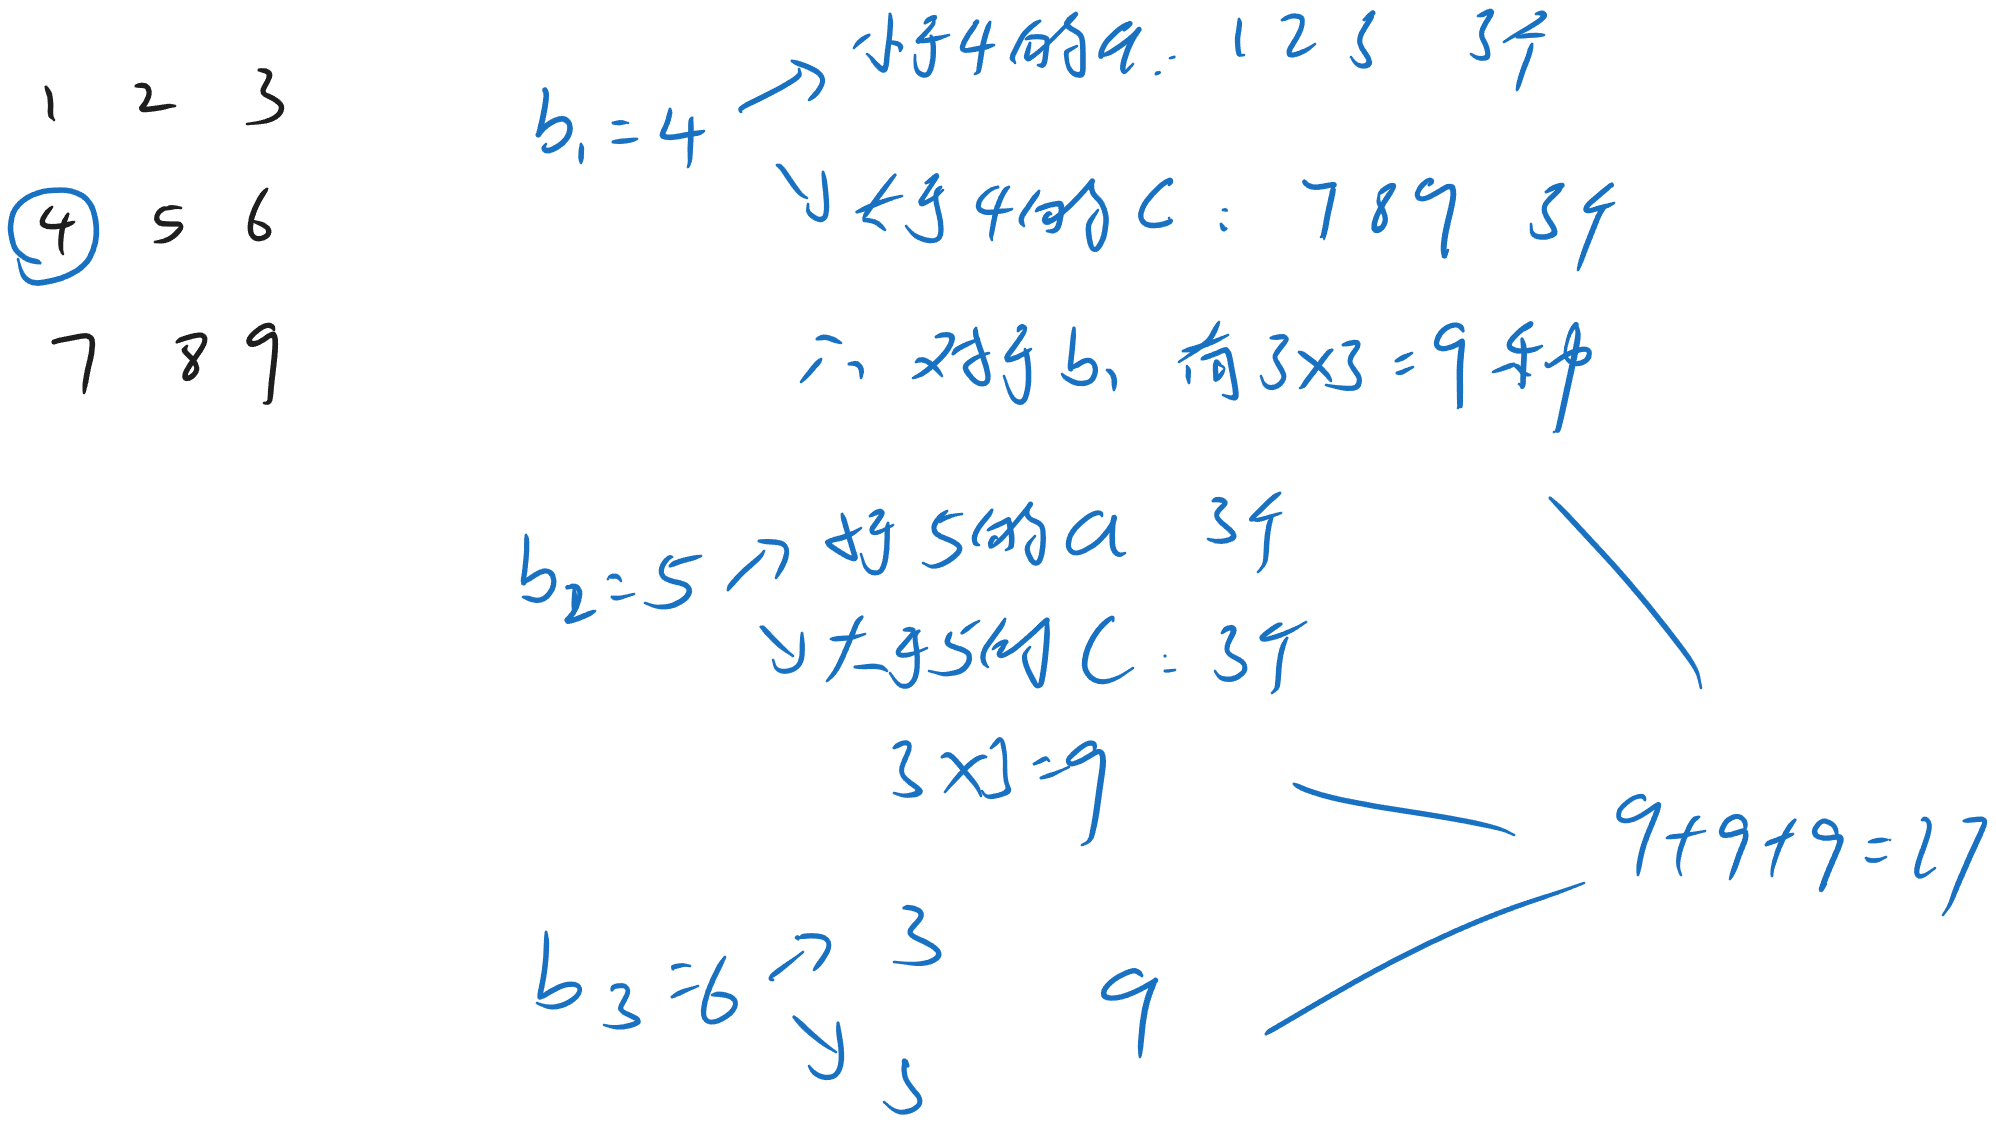 1 2 3
4 5 6
7 8 9
b₁=4
小于4的a: 1 2 3 3个
大于4的c: 7 8 9 3个
∴ 对于b₁ 有3×3=9种
b₂=5
小于5的a 3个
大于5的c: 3个
3×3=9
b₃=6
3
3
9
9+9+9=27